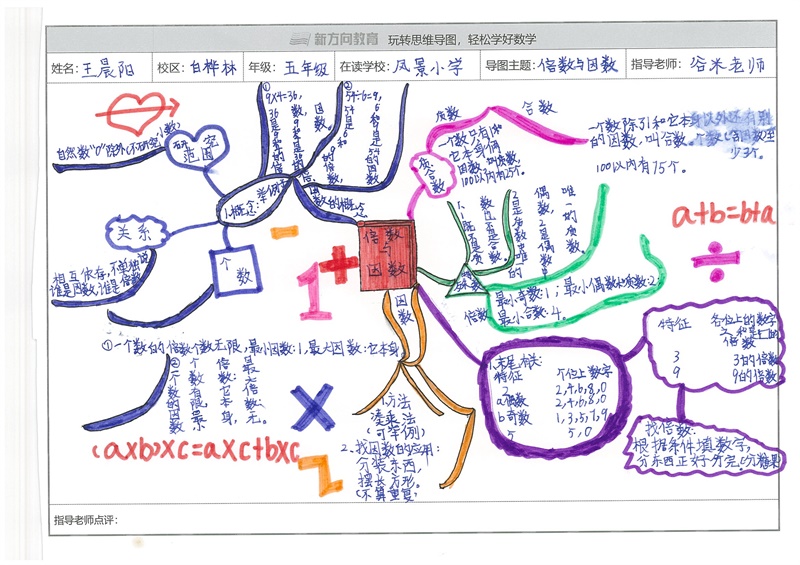 新方向教育 玩转思维导图，轻松学好数学
姓名：王晨阳 校区：白桦林 年级：五年级 在读学校：凤景小学 导图主题：倍数与因数 指导老师：谷米老师
研究范围
自然数"0"除外(不研究小数)
关系
相互依存,不单独说
谁是因数,谁是倍数
个数
1.概念
举例
①
9×4=36,
36是9和4的倍数,
9和4是36的因数。
②
54÷6=9,
倍数的概念
倍数与因数
质合数
质数
合数
一个数只有1和
它本身俩
因数,叫质数。
100以内有25个。
一个数除引和它本身以外还有别
的因数,叫合数。
少3个。
100以内有75个。
a+b=b+a
÷
1
+
-
×
2
1既不是质数,也不是合数。
2是偶数中唯一的质数
最小奇数:1；最小偶数和质数:2
最小合数:4。
倍数
特征
各位上的数字
之和是它的
倍数
3 3的倍数
9 9的倍数
1.末尾有关:
特征 个位上数字
2 2,4,6,8,0
a.偶数 2,4,6,8,0
b.奇数 1,3,5,7,9
5 5,0
找倍数:
根据条件填数字,
分东西正好分完。(分糖果)
因数
①一个数的倍数个数无限,最小因数:1,最大因数:它本身
②一个数的因数个数有限,最小倍数:它本身,最大倍数:无。
1.方法
凑乘法
(可举例)
2.找因数的应用:
分装东西,
摆长方形。
(不算重复)
(a×b)×c=a×c+b×c
指导老师点评：